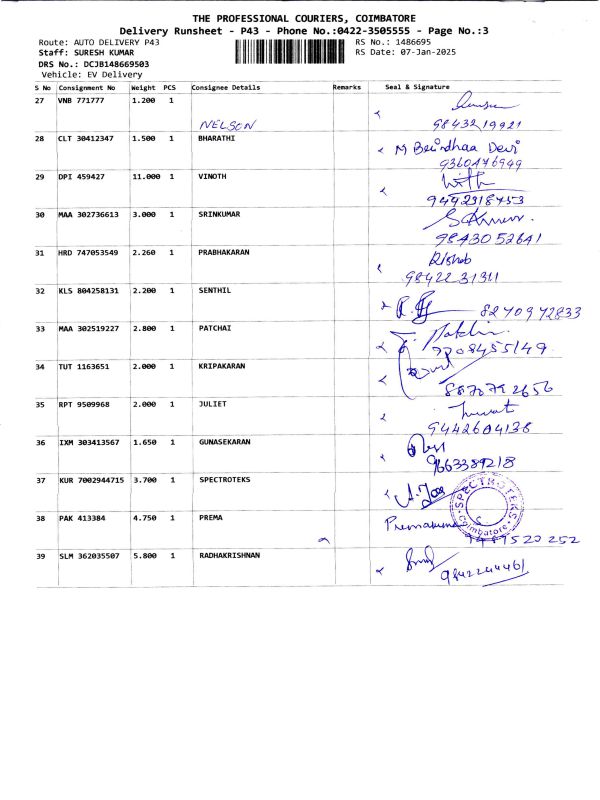 THE PROFESSIONAL COURIERS, COIMBATORE
Delivery Runsheet - P43 - Phone No.:0422-3505555 - Page No.:3
Route: AUTO DELIVERY P43 RS No.: 1486695
Staff: SURESH KUMAR RS Date: 07-Jan-2025
DRS No.: DCJB148669503
Vehicle: EV Delivery
S No Consignment No Weight PCS Consignee Details Remarks Seal & Signature
27 VNB 771777 1.200 1
NELSON 9843219921
28 CLT 30412347 1.500 1 BHARATHI
M Brindhaa Devi
9360476949
29 DPI 459427 11.000 1 VINOTH
9442318453
30 MAA 302736613 3.000 1 SRINKUMAR
9843052641
31 HRD 747053549 2.260 1 PRABHAKARAN Rishab
9842231311
32 KLS 804258131 2.200 1 SENTHIL
8270942833
33 MAA 302519227 2.800 1 PATCHAI
7708455149
34 TUT 1163651 2.000 1 KRIPAKARAN
35 RPT 9509968 2.000 1 JULIET
9442604138
36 IXM 303413567 1.650 1 GUNASEKARAN
9663389218
37 KUR 7002944715 3.700 1 SPECTROTEKS
SPECTROTEKS
Coimbatore
38 PAK 413384 4.750 1 PREMA Premakuma
9489520252
39 SLM 362035507 5.800 1 RADHAKRISHNAN
9842244461